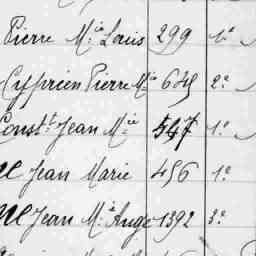 Pierre M.ie Louis 299 1.e
Cyprien Pierre M.ie 649 2.e
Const.t Jean M.ie 547 1.e
Jean Marie 456 1.e
Jean M.ie Ange 1392 3.e